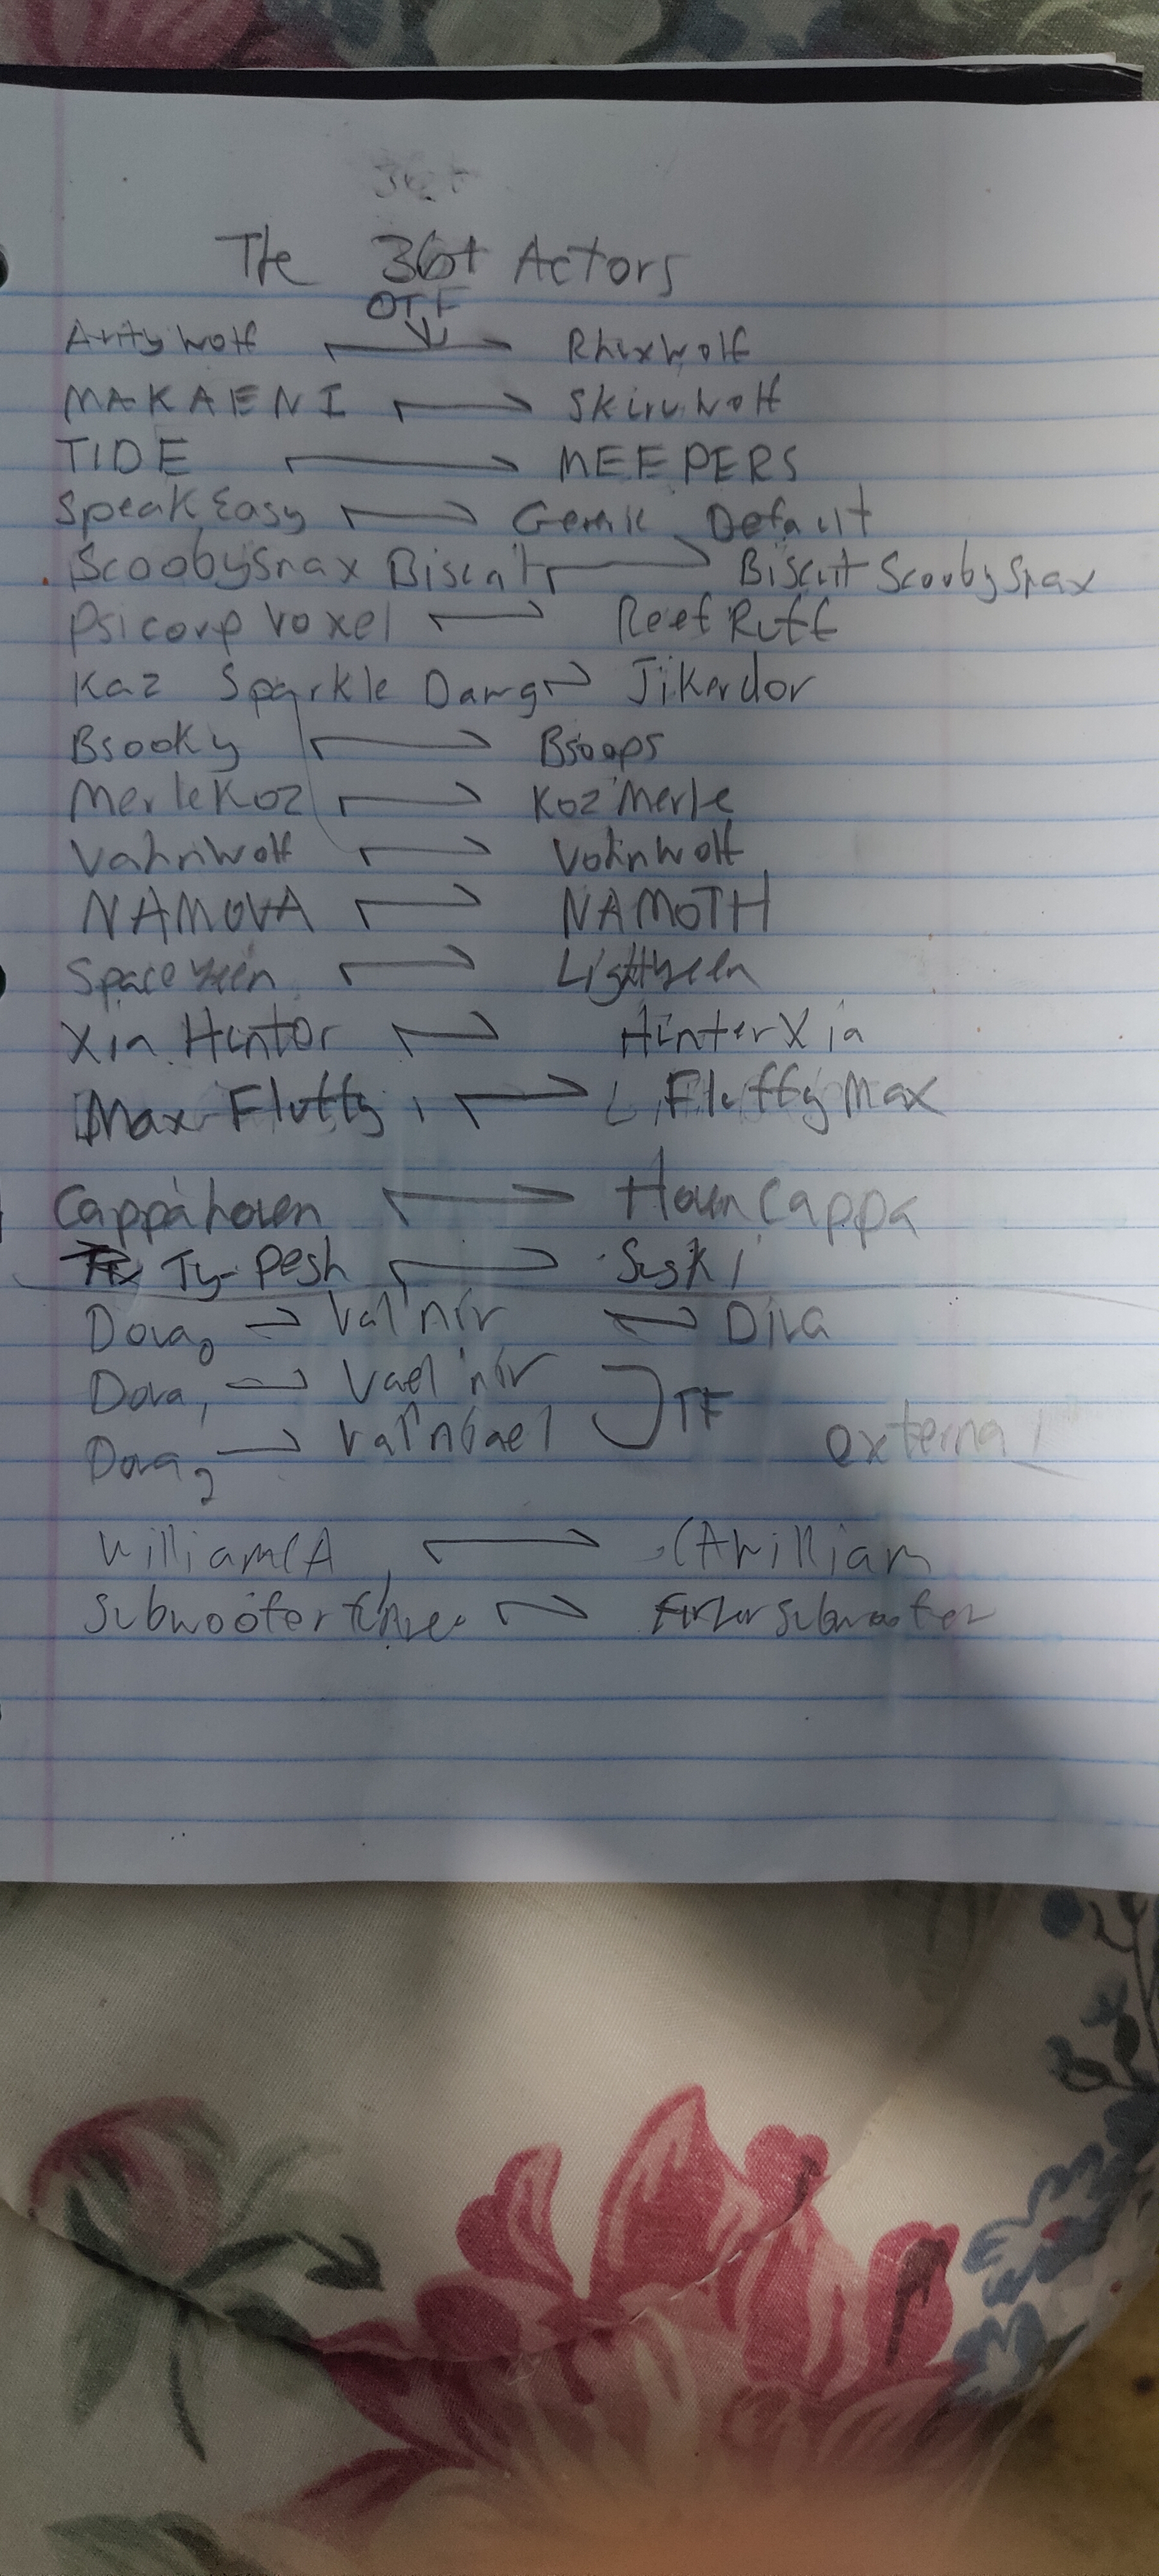 36+
The 36+ Actors
OTF
Arity Wolf Rhuxwolf
MAKAENI Skiruwolf
TIDE MEEPERS
SpeakEasy Default
ScoobySnax Biscuit Biscuit ScoobySnax
Psicorp Voxel Reef Ruff
Kaz Sparkle Dawg Jikardor
Bsooky Bsoops
MerleKoz KozMerle
Vahnwolf Vohnwolf
NAMOVA NAMOTH
Space
Xin Hunter Hunter Xia
Max Fluffy Fluffy Max
Cappahoven Hovn Cappa
Ty-Pesh Suski
Dova0 Val'nir Diva
Dova1 Vael'nir
TF
Dova2 Val'niael
external
WilliamCA CAWilliam
Subwoofer Subwoofer